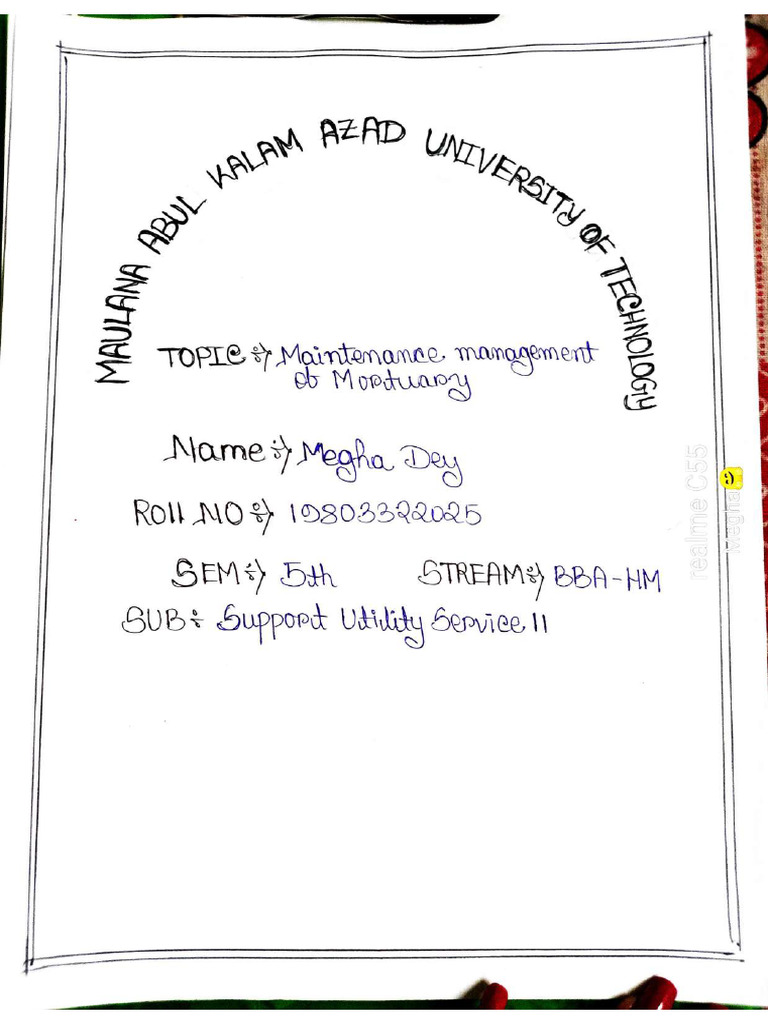 MAULANA ABUL KALAM AZAD UNIVERSITY OF TECHNOLOGY
TOPIC :) Maintenance management
of Mortuary
Name :) Megha Dey
Roll NO :) 19803322025
SEM :) 5th STREAM :) BBA-HM
SUB : Support Utility Service II
realme C55
Megha